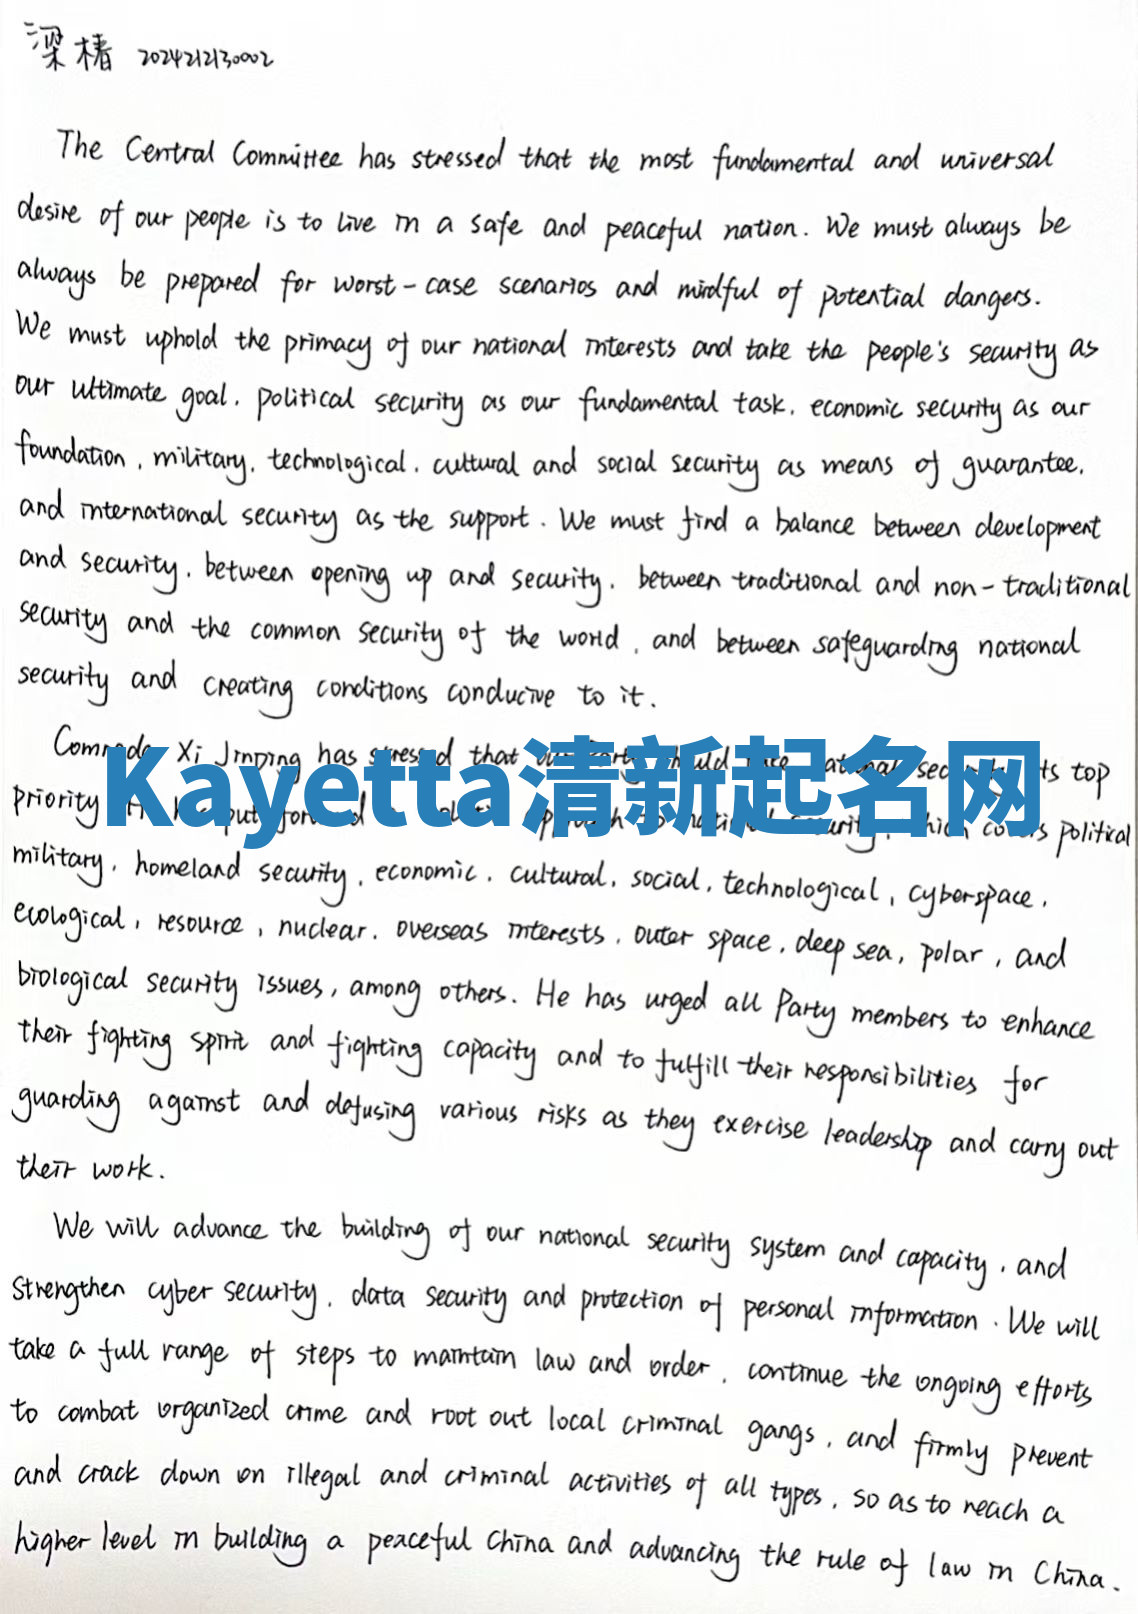 梁椿 2024212130002
The Central Committee has stressed that the most fundamental and universal
desire of our people is to live in a safe and peaceful nation. We must always be
always be prepared for worst-case scenarios and mindful of potential dangers.
We must uphold the primacy of our national interests and take the people's security as
our ultimate goal, political security as our fundamental task, economic security as our
foundation, military, technological, cultural and social security as means of guarantee,
and international security as the support. We must find a balance between development
and security, between opening up and security, between traditional and non-traditional
security and the common security of the world, and between safeguarding national
security and creating conditions conducive to it.
Comrade Xi Jinping has stressed that our Party should take national security its top
Kayetta清新起名网
priority. He has put forward a holistic approach to national security, which covers political
military, homeland security, economic, cultural, social, technological, cyberspace,
ecological, resource, nuclear, overseas interests, outer space, deep sea, polar, and
biological security issues, among others. He has urged all Party members to enhance
their fighting spirit and fighting capacity and to fulfill their responsibilities for
guarding against and defusing various risks as they exercise leadership and carry out
their work.
We will advance the building of our national security system and capacity, and
strengthen cyber security, data security and protection of personal information. We will
take a full range of steps to maintain law and order, continue the ongoing efforts
to combat organized crime and root out local criminal gangs, and firmly prevent
and crack down on illegal and criminal activities of all types, so as to reach a
higher level in building a peaceful China and advancing the rule of law in China.